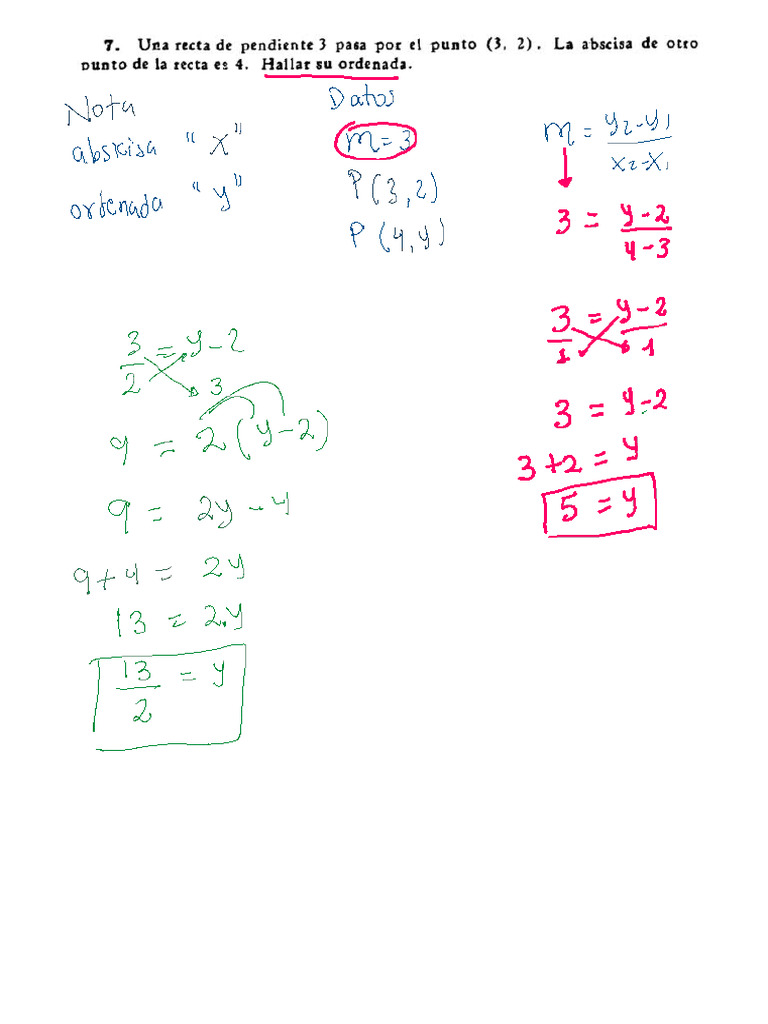 7. Una recta de pendiente 3 pasa por el punto (3, 2). La abscisa de otro
punto de la recta es 4. Hallar su ordenada.
Nota
absxisa "x"
ordenada "y"
Datos
m = 3
P (3, 2)
P (4, y)
m = y2-y1 / x2-x1
3 = y-2 / 4-3
3/1 = y-2 / 1
3 = y-2
3+2 = y
5 = y
3/2 = y-2 / 3
9 = 2(y-2)
9 = 2y-4
9+4 = 2y
13 = 2.y
13/2 = y